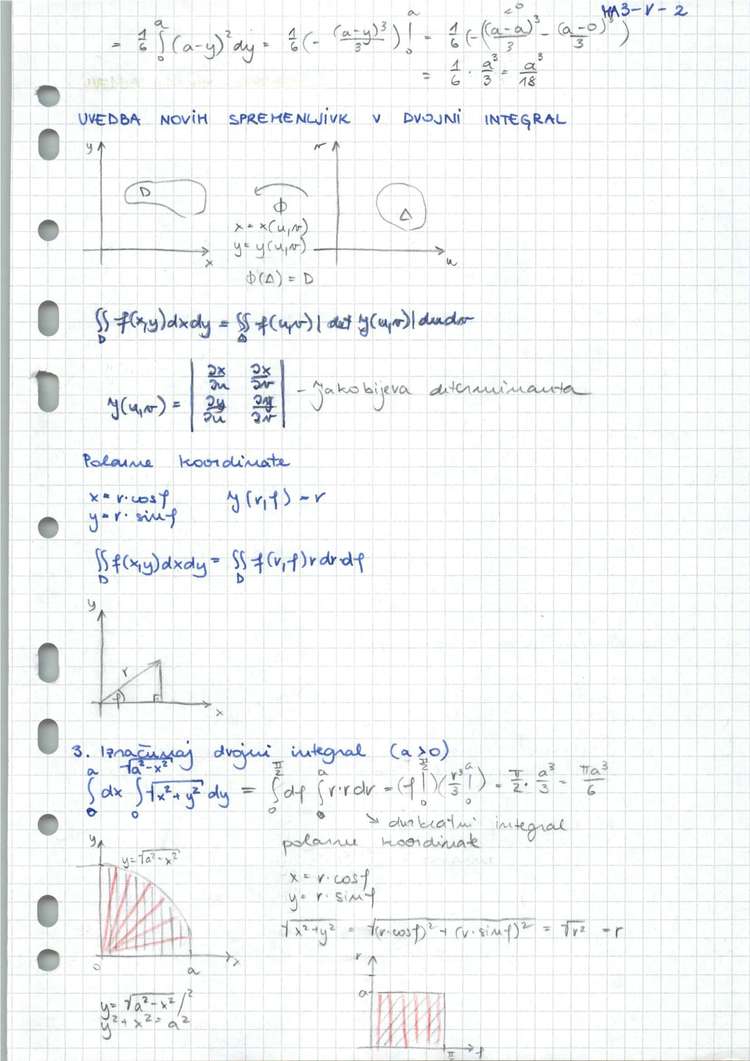 MA3-V-2
= 1/6 ∫₀ᵃ (a-y)² dy = 1/6 (- (a-y)³/3) |₀ᵃ = 1/6 (-((a-a)³/3 - (a-0)³/3)) =0
= 1/6 · a³/3 = a³/18
UVEDBA NOVIH SPREMENLJIVK V DVOJNI INTEGRAL
y D x
Φ
x = x(u,v)
y = y(u,v)
Φ(Δ) = D
v Δ u
∬_D f(x,y) dx dy = ∬_Δ f(u,v) | det J(u,v) | du dv
J(u,v) = | ∂x/∂u ∂x/∂v ; ∂y/∂u ∂y/∂v | - Jakobijeva determinanta
Polarne koordinate
x = r·cosφ J(r,φ) = r
y = r·sinφ
∬_D f(x,y) dx dy = ∬_D f(r,φ) r dr dφ
y r φ x
3. Izračunaj dvojni integral (a>0)
∫₀ᵃ dx ∫₀^√(a²-x²) √(x²+y²) dy = ∫₀^(π/2) dφ ∫₀ᵃ r·r dr = (φ |₀^(π/2)) (r³/3 |₀ᵃ) = π/2 · a³/3 = πa³/6
integral
polarne koordinate
y y=√(a²-x²) 0 a x
x = r·cosφ
y = r·sinφ
√(x²+y²) = √((r·cosφ)² + (r·sinφ)²) = √r² = r
y = √(a²-x²) /²
y² + x² = a²
r a π/2 φ